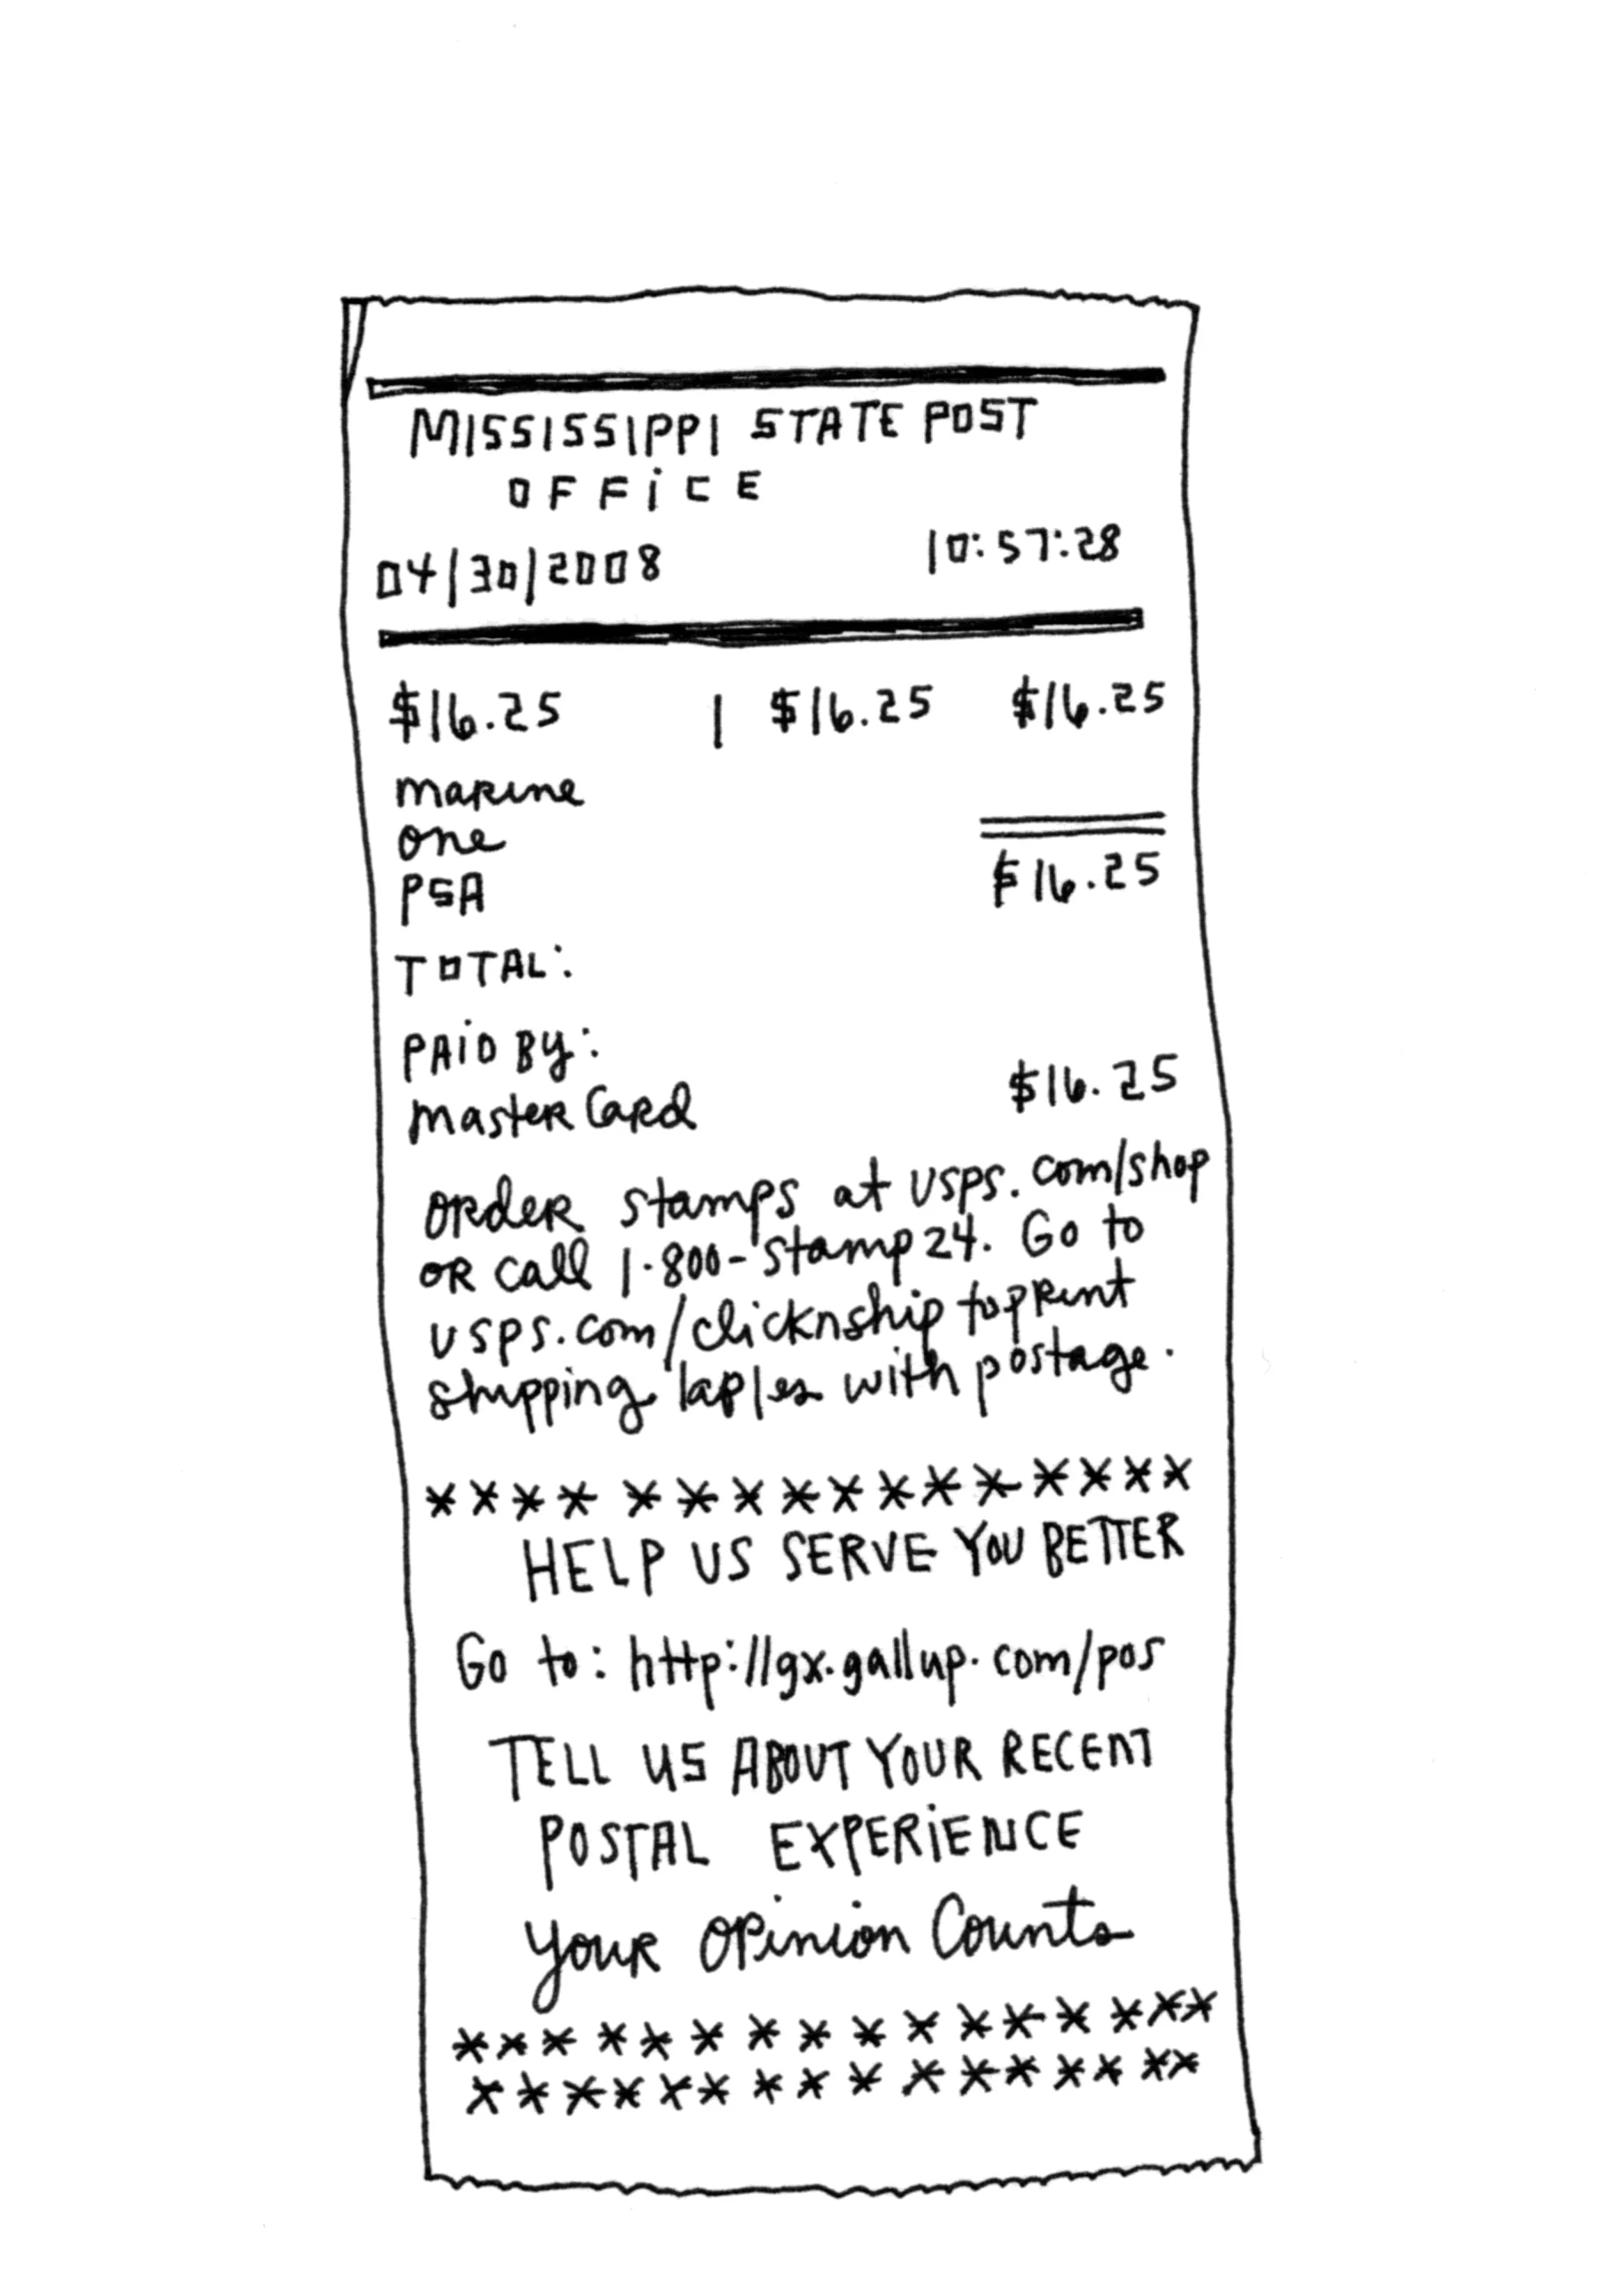 MISSISSIPPI STATE POST
OFFiCE
04/30/2008 10:57:28
$16.25 1 $16.25 $16.25
marine
one
PSA
$16.25
TOTAL:
PAiD By:
master Card $16.25
order stamps at usps.com/shop
or call 1-800-stamp24. Go to
usps.com/clicknship to print
shipping laples with postage.
****************
HELP US SERVE YOU BETTER
Go to: http://gx.gallup.com/pos
TELL US ABOUT YOUR RECENT
POSTAL EXPERiENCE
Your Opinion Counts
****************
****************